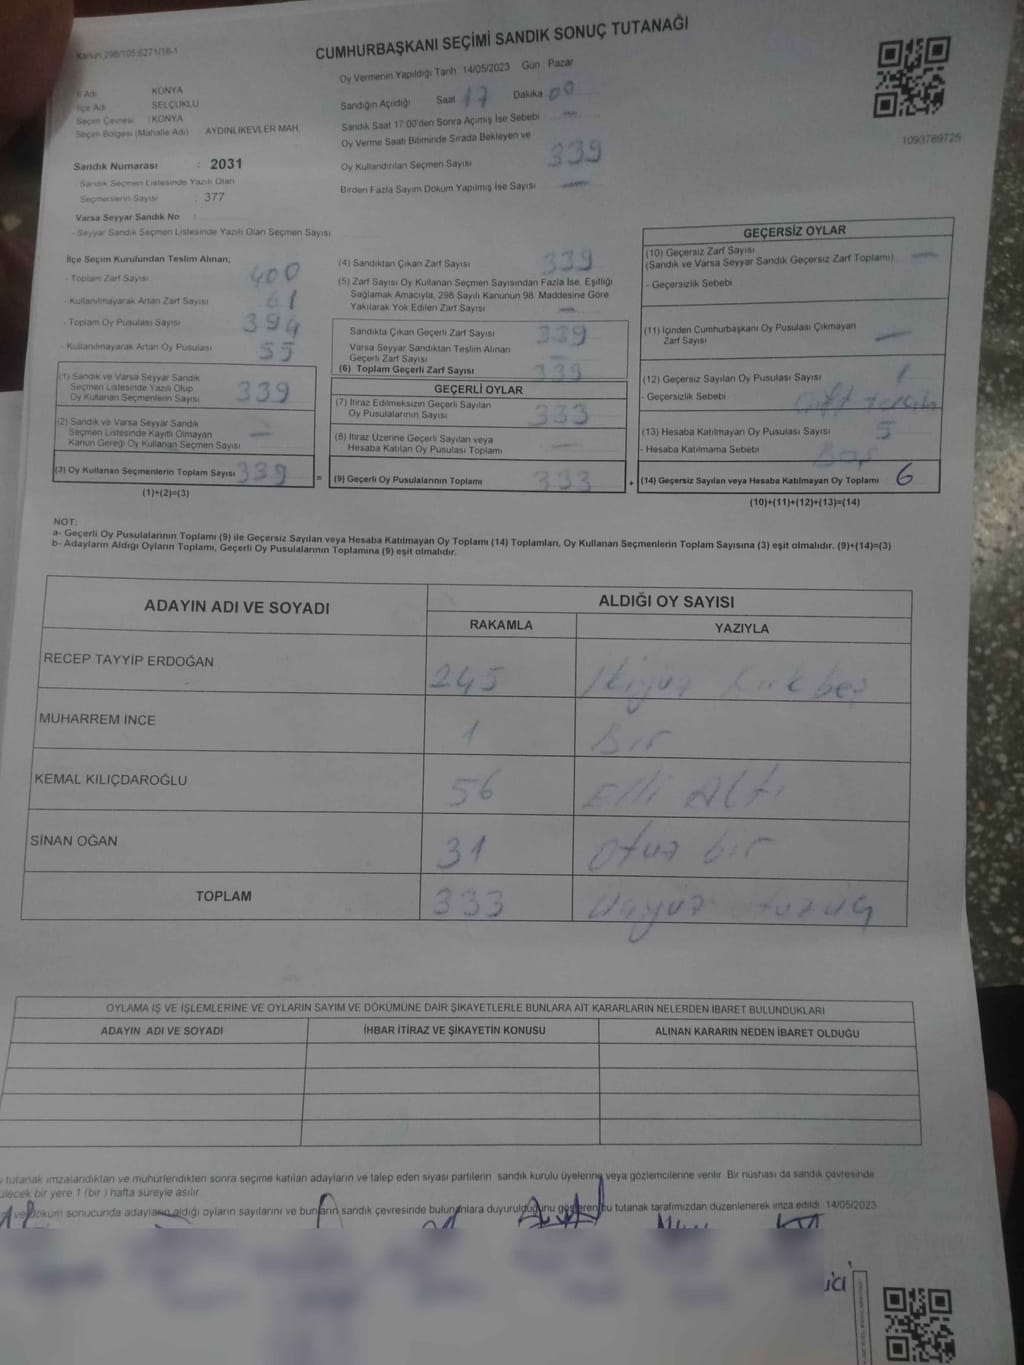 Kanun:298/105:6271/18-1
CUMHURBAŞKANI SEÇİMİ SANDIK SONUÇ TUTANAĞI
Oy Vermenin Yapıldığı Tarih 14/05/2023 Gün Pazar
İl Adı KONYA
İlçe Adı SELÇUKLU
Seçim Çevresi : KONYA
Seçim Bölgesi (Mahalle Adı) AYDINLIKEVLER MAH
Sandığın Açıldığı Saat 17 Dakika 00
Sandık Saat 17:00'den Sonra Açımış İse Sebebi —
Oy Verme Saati Bitiminde Sırada Bekleyen ve
Oy Kullandırılan Seçmen Sayısı 339
Birden Fazla Sayım Döküm Yapılmış İse Sayısı —
1093789725
Sandık Numarası : 2031
- Sandık Seçmen Listesinde Yazılı Olan
Seçmenlerin Sayısı : 377
Varsa Seyyar Sandık No
- Seyyar Sandık Seçmen Listesinde Yazılı Olan Seçmen Sayısı
İlçe Seçim Kurulundan Teslim Alınan;
- Toplam Zarf Sayısı 400
- Kullanılmayarak Artan Zarf Sayısı 61
- Toplam Oy Pusulası Sayısı 394
- Kullanılmayarak Artan Oy Pusulası 55
(1) Sandık ve Varsa Seyyar Sandık
Seçmen Listesinde Yazılı Olup
Oy Kullanan Seçmenlerin Sayısı 339
(2) Sandık ve Varsa Seyyar Sandık
Seçmen Listesinde Kayıtlı Olmayan
Kanun Gereği Oy Kullanan Seçmen Sayısı —
(3) Oy Kullanan Seçmenlerin Toplam Sayısı 339
(1)+(2)=(3)
(4) Sandıktan Çıkan Zarf Sayısı 339
(5) Zarf Sayısı Oy Kullanan Seçmen Sayısından Fazla İse, Eşitliği
Sağlamak Amacıyla, 298 Sayılı Kanunun 98. Maddesine Göre
Yakılarak Yok Edilen Zarf Sayısı —
Sandıkta Çıkan Geçerli Zarf Sayısı 339
Varsa Seyyar Sandıktan Teslim Alınan
Geçerli Zarf Sayısı —
(6) Toplam Geçerli Zarf Sayısı 339
GEÇERLİ OYLAR
(7) İtiraz Edilmeksizin Geçerli Sayılan
Oy Pusulalarının Sayısı 333
(8) İtiraz Üzerine Geçerli Sayılan veya
Hesaba Katılan Oy Pusulası Toplamı —
= (9) Geçerli Oy Pusulalarının Toplamı 333
GEÇERSİZ OYLAR
(10) Geçersiz Zarf Sayısı
(Sandık ve Varsa Seyyar Sandık Geçersiz Zarf Toplamı) —
- Geçersizlik Sebebi
(11) İçinden Cumhurbaşkanı Oy Pusulası Çıkmayan
Zarf Sayısı —
(12) Geçersiz Sayılan Oy Pusulası Sayısı 1
- Geçersizlik Sebebi Çift tercih
(13) Hesaba Katılmayan Oy Pusulası Sayısı 5
- Hesaba Katılmama Sebebi Boş
+ (14) Geçersiz Sayılan veya Hesaba Katılmayan Oy Toplamı 6
(10)+(11)+(12)+(13)=(14)
NOT:
a- Geçerli Oy Pusulalarının Toplamı (9) ile Geçersiz Sayılan veya Hesaba Katılmayan Oy Toplamı (14) Toplamları, Oy Kullanan Seçmenlerin Toplam Sayısına (3) eşit olmalıdır. (9)+(14)=(3)
b- Adayların Aldığı Oyların Toplamı, Geçerli Oy Pusulalarının Toplamına (9) eşit olmalıdır.
ADAYIN ADI VE SOYADI ALDIĞI OY SAYISI
RAKAMLA YAZIYLA
RECEP TAYYİP ERDOĞAN 245 İkiyüz kırkbeş
MUHARREM İNCE 1 Bir
KEMAL KILIÇDAROĞLU 56 Elli Altı
SİNAN OĞAN 31 otuz bir
TOPLAM 333 üçyüz otuzüç
OYLAMA İŞ VE İŞLEMLERİNE VE OYLARIN SAYIM VE DÖKÜMÜNE DAİR ŞİKAYETLERLE BUNLARA AİT KARARLARIN NELERDEN İBARET BULUNDUKLARI
ADAYIN ADI VE SOYADI İHBAR İTİRAZ VE ŞİKAYETİN KONUSU ALINAN KARARIN NEDEN İBARET OLDUĞU
tutanak imzalandıktan ve mühürlendikten sonra seçime katılan adayların ve talep eden siyasi partilerin sandık kurulu üyelerine veya gözlemcilerine verilir. Bir nüshası da sandık çevresinde
bir yere 1 (bir ) hafta süreyle asılır.
ve döküm sonucunda adayların aldığı oyların sayılarını ve bunların sandık çevresinde bulunanlara duyurulduğunu gösteren bu tutanak tarafımızdan düzenlenerek imza edildi. 14/05/2023